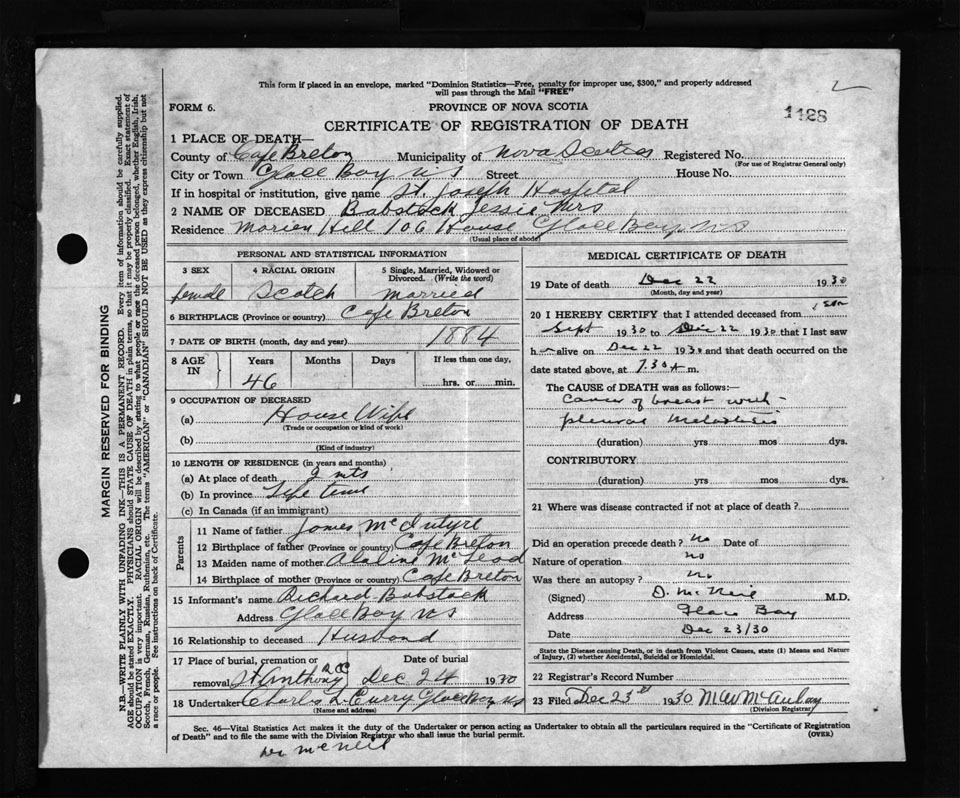 This form if placed in an envelope, marked "Dominion Statistics—Free, penalty for improper use, $300," and properly addressed
will pass through the Mail "FREE"
FORM 6.
PROVINCE OF NOVA SCOTIA
1128
CERTIFICATE OF REGISTRATION OF DEATH
1 PLACE OF DEATH—
County of Cape Breton Municipality of Nova Scotia Registered No.
(For use of Registrar General only)
City or Town Glace Bay N S Street House No.
If in hospital or institution, give name St. Joseph Hospital
2 NAME OF DECEASED Babstock Jessie Mrs
Residence Morien Hill 106 House Glace Bay N S
(Usual place of abode)
PERSONAL AND STATISTICAL INFORMATION
3 SEX 4 RACIAL ORIGIN 5 Single, Married, Widowed or Divorced. (Write the word)
female Scotch married
6 BIRTHPLACE (Province or country) Cape Breton
7 DATE OF BIRTH (month, day and year) 1884
8 AGE IN Years Months Days If less than one day,
46 hrs. or min.
9 OCCUPATION OF DECEASED
(a) House Wife
(Trade or occupation or kind of work)
(b)
(Kind of industry)
10 LENGTH OF RESIDENCE (in years and months)
(a) At place of death mts
(b) In province Life time
(c) In Canada (if an immigrant)
Parents
11 Name of father James McIntyre
12 Birthplace of father (Province or country) Cape Breton
13 Maiden name of mother McLeod
14 Birthplace of mother (Province or country) Cape Breton
15 Informant's name Richard Babstock
Address Glace Bay N S
16 Relationship to deceased Husband
17 Place of burial, cremation or removal Date of burial
St Anthony R C Dec 24 1930
18 Undertaker Charles L Curry Glace Bay N S
MEDICAL CERTIFICATE OF DEATH
19 Date of death Dec 22 1930
(Month, day and year)
20 I HEREBY CERTIFY that I attended deceased from
Sept 1930 to Dec 22 1930 that I last saw
h alive on Dec 22 1930 and that death occurred on the
date stated above, at 7.30 A m.
The CAUSE of DEATH was as follows:—
Cancer of breast with
pleural Metastasis
(duration) yrs mos dys.
CONTRIBUTORY
(duration) yrs mos dys.
21 Where was disease contracted if not at place of death?
Did an operation precede death? no Date of
Nature of operation no
Was there an autopsy? no
(Signed) D. McNeil M.D.
Address Glace Bay
Date Dec 23/30
State the Disease causing Death, or in death from Violent Causes, state (1) Means and Nature
of Injury, (2) whether Accidental, Suicidal or Homicidal.
22 Registrar's Record Number
23 Filed Dec 23rd 1930
(Division Registrar)
Sec. 46—Vital Statistics Act makes it the duty of the Undertaker or person acting as Undertaker to obtain all the particulars required in the "Certificate of Registration
of Death" and to file the same with the Division Registrar who shall issue the burial permit.
(OVER)
Dr McNeil
MARGIN RESERVED FOR BINDING
N.B.—WRITE PLAINLY WITH UNFADING INK—THIS IS A PERMANENT RECORD. Every item of information should be carefully supplied.
AGE should be stated EXACTLY. PHYSICIANS should STATE CAUSE OF DEATH in plain terms, so that it may be properly classified. Exact statement of
OCCUPATION is very important. RACIAL ORIGIN will be described by stating to what people or race the deceased person belonged, whether English, Irish,
Scotch, French, German, Russian, Ruthenian, etc. The terms "AMERICAN" or "CANADIAN" SHOULD NOT BE USED as they express citizenship but not
a race or people. See instructions on back of Certificate.